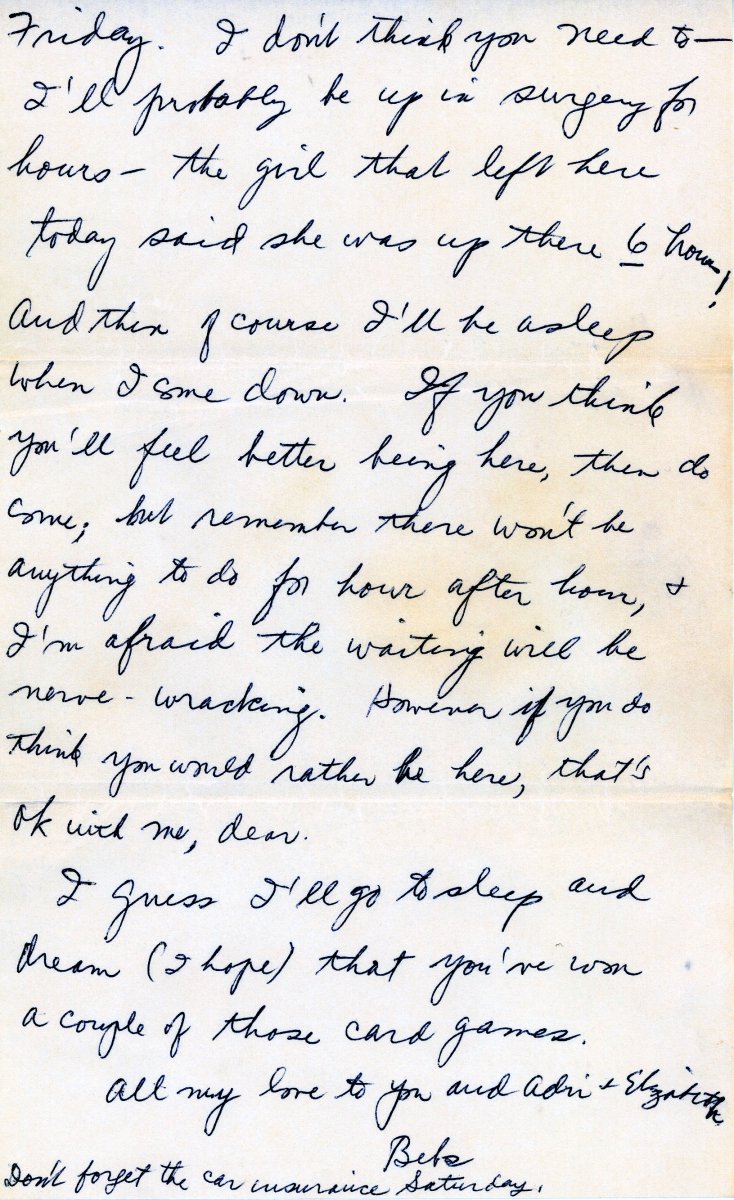 Friday. I don't think you need to—
I'll probably be up in surgery for
hours— the girl that left here
today said she was up there 6 hours!
And then of course I'll be asleep
when I come down. If you think
you'll feel better being here, then do
come; but remember there won't be
anything to do for hour after hour, +
I'm afraid the waiting will be
nerve-wracking. However if you do
think you would rather be here, that's
ok with me, dear.
I guess I'll go to sleep and
dream (I hope) that you've won
a couple of those card games.
All my love to you and Adri + Elizabeth.
Bebs
Don't forget the car insurance Saturday.